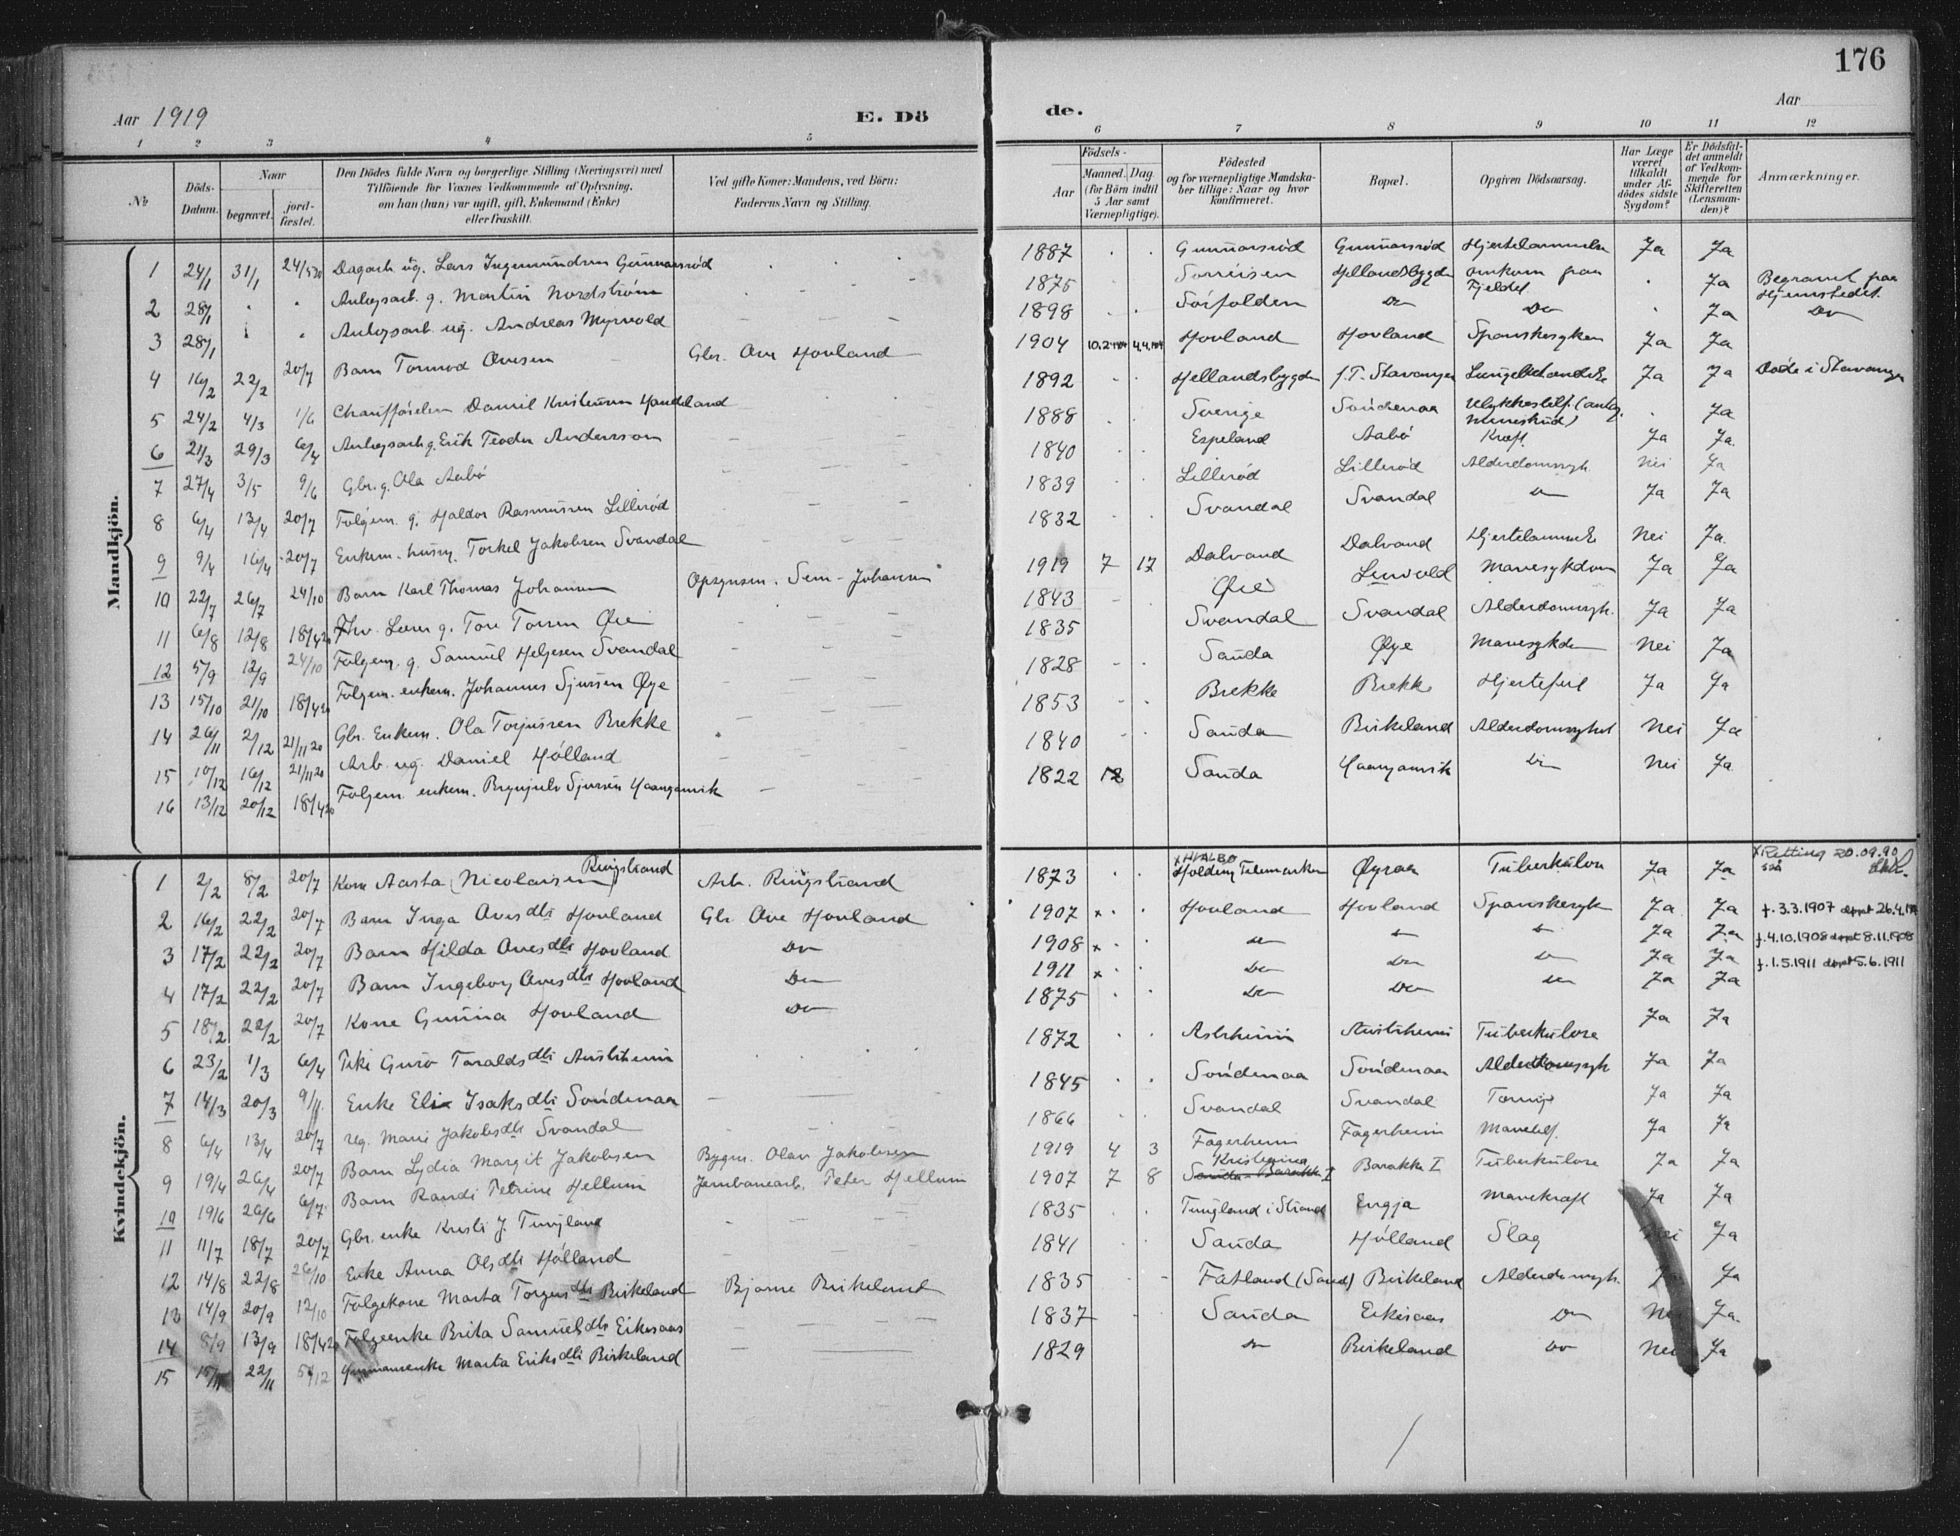 176
Aar 1919
E. Dö
de.
Aar
1 2 3 4 5 6 7 8 9 10 11 12
№
Döds-Datum.
Naar
begravet.
jord-fæstet.
Den Dödes fulde Navn og borgerlige Stilling (Næringsvei) med
Tilföiende for Voxnes Vedkommende af Oplysning,
om han (hun) var ugift, gift, Enkemand (Enke)
eller fraskilt.
Ved gifte Koner: Mandens, ved Börn:
Faderens Navn og Stilling.
Födsels-
Aar
Maaned. Dag.
(for Börn indtil
5 Aar samt
Værnepligtige).
Födested
og for værnepligtige Mandska-
ber tillige: Naar og hvor
konfirmeret.
Bopæl.
Opgiven Dödsaarsag.
Har Læge
været
tilkaldt
under Af-
dödes sidste
Sygdom?
Er Dödsfal-
det anmeldt
af Vedkom-
mende for
Skifteretten
(Lensman-
den)?
Anmærkninger.
Mandkjön.
1 24/1 31/1 24/5 20 Dagarb. ug. Lars Ingemundsen Gunnarsröd 1887 Gunnarsröd Gunnarsröd Hjertelammelse Ja Ja
2 28/1 Anlegsarb. g. Martin Nordström 1875 Hellandsbygden omkom paa Fjeldet Ja Begravet paa Hjemstedet.
3 28/1 Anlegsarb. ug. Andreas Myrvold 1898 Sörfolden Do Do Ja Do
4 16/2 22/2 20/7 Barn Tormod Ovesen Gbr. Ove Hovland 1904 Hovland Hovland Spanskesyken Ja Ja
5 24/2 4/3 1/6 Chaufförelev Daniel 1892 Hellandsbygden f.T. Stavanger Ja Ja Döde i Stavanger
6 21/3 29/3 6/4 Anlegsarb. g. Erik Teodor Andersson 1888 Sverige Söndenaa Ja
7 27/4 3/5 9/6 Gbr. g. Ola Aabö 1840 Espeland Aabö Kræft Ja Ja
8 6/4 13/4 20/7 Folgem. g. Haldor Rasmussen Lilleröd 1839 Lilleröd Lilleröd Alderdomssyk. Nei Ja
9 9/4 16/4 20/7 Enkem. husm. Torkel Jakobsen Svandal 1832 Svandal Svandal Do Ja Ja
10 22/7 26/7 24/10 Barn Karl Thomas Johansen Opsynsm. Sem-Johansen 1919 7 17 Dalvand Dalvand Hjertelammelse Nei Ja
11 6/8 12/8 18/4 20 Fhv. Lærer g. Tore Toresen Øie 1843 Øie Mavesykdom Ja Ja
12 5/9 12/9 24/10 Folgem. g. Samuel Helgesen Svandal 1835 Svandal Svandal Alderdomssyk. Ja Ja
13 15/10 21/10 18/4 20 Folgem. enkem. Johannes Sjursen Øye 1828 Sauda Øye Mavesykdom Nei Ja
14 26/11 2/12 21/11 20 Gbr. Enkem. Ola Torjussen Brekke 1853 Brekke Brekke Hjertefeil Ja Ja
15 10/12 16/12 21/11 20 Arb. ug. Daniel Hölland 1840 Sauda Birkeland Alderdomssykd. Nei Ja
16 13/12 20/12 18/4 20 Folgem. enkem. Brynjulv Sjursen Haanganvik 1822 12 Sauda Haanganvik Do Nei Ja
Kvindekjön.
1 2/2 8/2 20/7 Kone Aasta (Nicolaisen) Ringstrand Arb. Ringstrand 1873 Telemarken Øyraa Tuberkulose Ja Ja x Retting 20.09.90
2 16/2 22/2 20/7 Barn Inga Ovesdtr Hovland Gbr. Ove Hovland 1907 x Hovland Hovland Spanskesyk Ja Ja f. 3.3.1907
3 17/2 22/2 20/7 Barn Hilda Ovesdtr Hovland Do 1908 x Do Do Do Ja Ja f. 4.10.1908 døpt 8.11.1908
4 17/2 22/2 20/7 Barn Ingeborg Ovesdtr Hovland Do 1911 x Do Do Do Ja Ja f. 1.5.1911 døpt 5.6.1911
5 18/2 22/2 20/7 Kone Gunna Hovland Do 1875 Do Do Do Ja Ja
6 23/2 1/3 6/4 Pike Guro Taraldsdtr Austrheim 1872 Austrheim Tuberkulose Ja Ja
7 14/3 20/3 9/11 Enke Eli Isaksdtr Söndenaa 1845 Söndenaa Söndenaa Alderdomssyk Ja Ja
8 6/4 13/4 20/7 ug. Mari Jakobsdtr Svandal 1866 Svandal Svandal Ja Ja
9 19/4 26/4 20/7 Barn Lydia Margit Jakobsen Bygm. Olav Jakobsen 1919 4 3 Fagerheim Fagerheim Ja Ja
10 19/6 26/6 6/7 Barn Randi Petrine Hellum Jernbanearb. Peter Hellum 1907 7 8 Kristiania Barakke I Tuberkulose Ja Ja
11 11/7 18/7 20/7 Gbr. enke Kristi J. Tungland 1835 Tungland i Strand Engja Mavekræft Ja Ja
12 14/8 22/8 26/10 Enke Anna Olsdtr Hölland 1841 Sauda Hölland Slag Nei Ja
13 14/9 20/9 12/10 Folgekone Marta Torgersdtr Birkeland Bjarne Birkeland 1835 Fatland (Sand) Birkeland Alderdomssyk. Ja Ja
14 8/9 13/9 18/4 20 Folgeenke Brita Samuelsdtr Eikesaas 1837 Sauda Eikesaas Do Nei Ja
15 15/11 22/11 5/12 Marta Eriksdtr Birkeland 1829 Do Birkeland Do Nei Ja